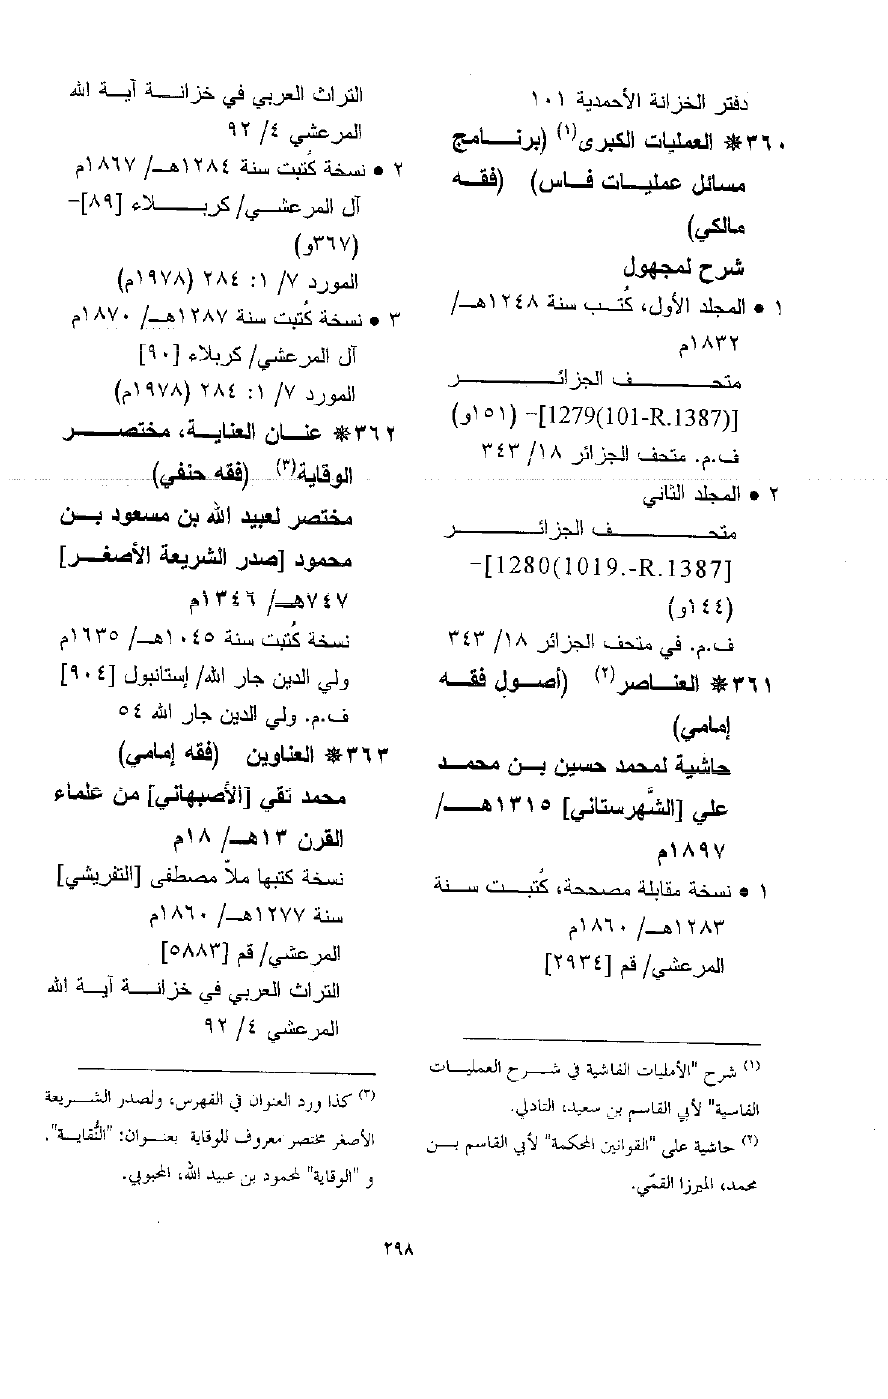 دفتر الخزانة الأحمدية ١٠١
٣٦٠* العمليات الكبرى(١) (برنامج
مسائل عمليات فاس) (فقه
مالكي)
شرح لمجهول
١ • المجلد الأول، كُتب سنة ١٢٤٨هـ/
١٨٣٢م
متحف الجزائر
[1279(101-R.1387)]- (١٥١و)
ف.م. متحف الجزائر ١٨/ ٣٤٣
٢ • المجلد الثاني
متحف الجزائر
[1280(1019.-R.1387]-
(١٤٤و)
ف.م. في متحف الجزائر ١٨/ ٣٤٣
٣٦١* العناصر(٢) (أصول فقه
إمامي)
حاشية لمحمد حسين بن محمد
علي [الشَّهرستاني] ١٣١٥هـ/
١٨٩٧م
١ • نسخة مقابلة مصححة، كُتبت سنة
١٢٨٣هـ/ ١٨٦٠م
المرعشي/ قم [٢٩٣٤]
(١) شرح "الأمليات الفاشية في شرح العمليات
الفاسية" لأبي القاسم بن سعيد، التادلي.
(٢) حاشية على "القوانين المحكمة" لأبي القاسم بن
محمد، الميرزا القمّي.
التراث العربي في خزانة آية الله
المرعشي ٤/ ٩٢
٢ • نسخة كُتبت سنة ١٢٨٤هـ/ ١٨٦٧م
آل المرعشي/ كربلاء [٨٩]-
(٣٦٧و)
المورد ٧/ ١: ٢٨٤ (١٩٧٨م)
٣ • نسخة كُتبت سنة ١٢٨٧هـ/ ١٨٧٠م
آل المرعشي/ كربلاء [٩٠]
المورد ٧/ ١: ٢٨٤ (١٩٧٨م)
٣٦٢* عنان العناية، مختصر
الوقاية(٣) (فقه حنفي)
مختصر لعبيد الله بن مسعود بن
محمود [صدر الشريعة الأصغر]
٧٤٧هـ/ ١٣٤٦م
نسخة كُتبت سنة ١٠٤٥هـ/ ١٦٣٥م
ولي الدين جار الله/ إستانبول [٩٠٤]
ف.م. ولي الدين جار الله ٥٤
٣٦٣* العناوين (فقه إمامي)
محمد تقي [الأصبهاني] من علماء
القرن ١٣هـ/ ١٨م
نسخة كتبها ملاّ مصطفى [التفريشي]
سنة ١٢٧٧هـ/ ١٨٦٠م
المرعشي/ قم [٥٨٨٣]
التراث العربي في خزانة آية الله
المرعشي ٤/ ٩٢
(٣) كذا ورد العنوان في الفهرس، ولصدر الشريعة
الأصغر مختصر معروف للوقاية بعنوان: "النُّقاية".
و "الوقاية" لمحمود بن عبيد الله، المحبوبي.
٢٩٨